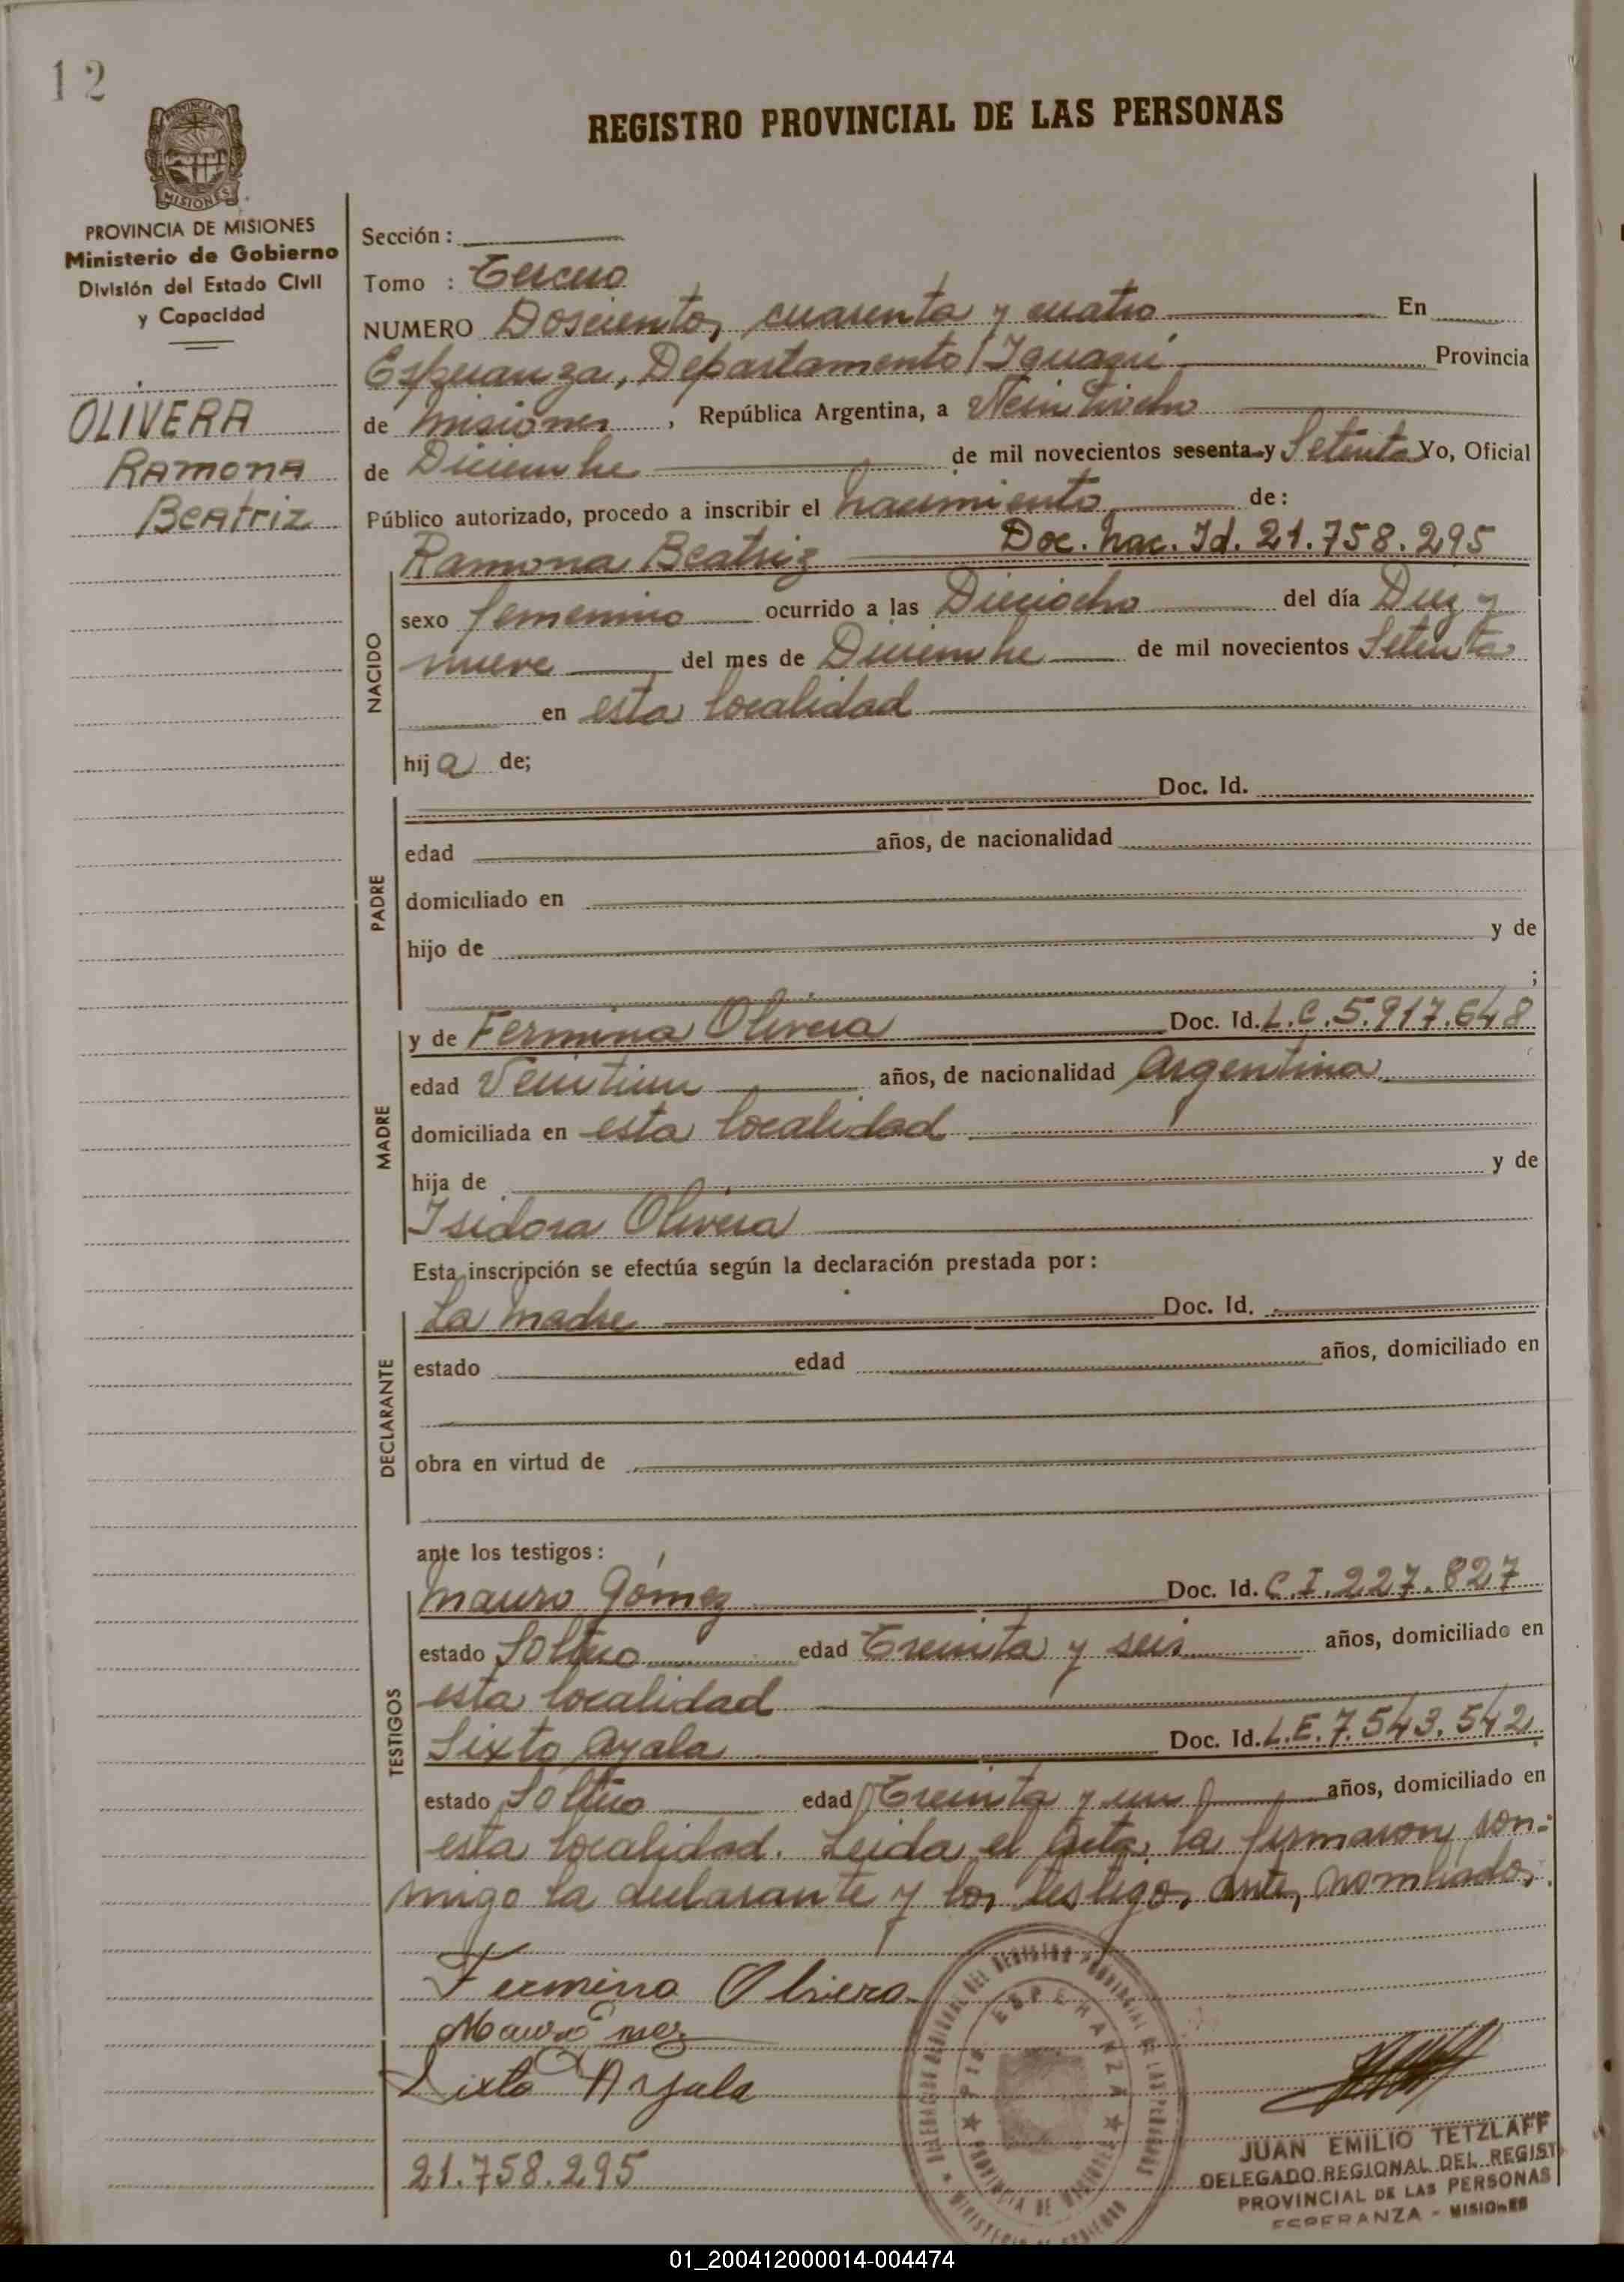 12
REGISTRO PROVINCIAL DE LAS PERSONAS
PROVINCIA DE
MISIONES
PROVINCIA DE MISIONES
Ministerio de Gobierno
División del Estado Civil
y Capacidad
OLIVERA
RAMONA
BEATRIZ
Sección :
Tomo : Tercero
NUMERO Doscientos cuarenta y cuatro En
Esperanza, Departamento Iguazú Provincia
de Misiones, República Argentina, a Veintiocho
de Diciembre de mil novecientos sesenta y Setenta Yo, Oficial
Público autorizado, procedo a inscribir el nacimiento de:
Ramona Beatriz Doc. nac. Id. 21.758.295
NACIDO
sexo femenino ocurrido a las Dieciocho del día Diez y
nueve del mes de Diciembre de mil novecientos Setenta
en esta localidad
hija de;
PADRE
Doc. Id.
edad años, de nacionalidad
domiciliado en
hijo de y de
;
MADRE
y de Fermina Olivera Doc. Id. L.C. 5.917.648
edad Veintiun años, de nacionalidad Argentina
domiciliada en esta localidad
hija de y de
Isidora Olivera
Esta inscripción se efectúa según la declaración prestada por:
DECLARANTE
La madre Doc. Id.
estado edad años, domiciliado en
obra en virtud de
ante los testigos:
TESTIGOS
Mauro Gómez Doc. Id. C.I. 227.827
estado Soltero edad Treinta y seis años, domiciliado en
esta localidad
Sixto Ayala Doc. Id. L.E. 7.543.542
estado Soltero edad Treinta y un años, domiciliado en
esta localidad. Leida el acta, la firmaron con=
migo la declarante y los testigos antes nombrados.
Fermina Olivera
Mauro
Sixto Ayala
21.758.295
DEL REGISTRO PROVINCIAL DE LAS PERSONAS
ESPERANZA
PROVINCIA DE MISIONES
MINISTERIO DE GOBIERNO
JUAN EMILIO TETZLAFF
DELEGADO REGIONAL DEL REGIST
PROVINCIAL DE LAS PERSONAS
ESPERANZA - MISIONES
01_200412000014-004474